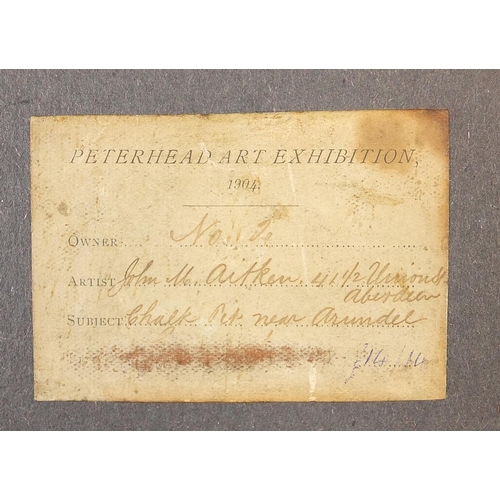 PETERHEAD ART EXHIBITION,
1904.
OWNER No.
ARTIST John M. Aitken. 41½ Union St
Aberdeen
SUBJECT Chalk Pit near Arundel
£14